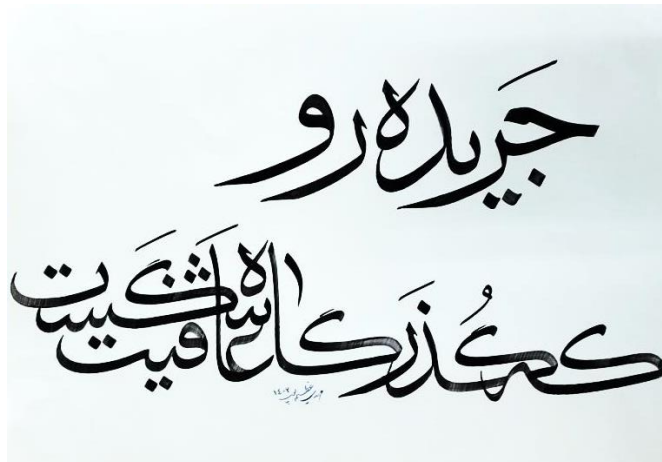 جریده رو
که گذرگاه عافیت تنگ است
۱۴۰۲